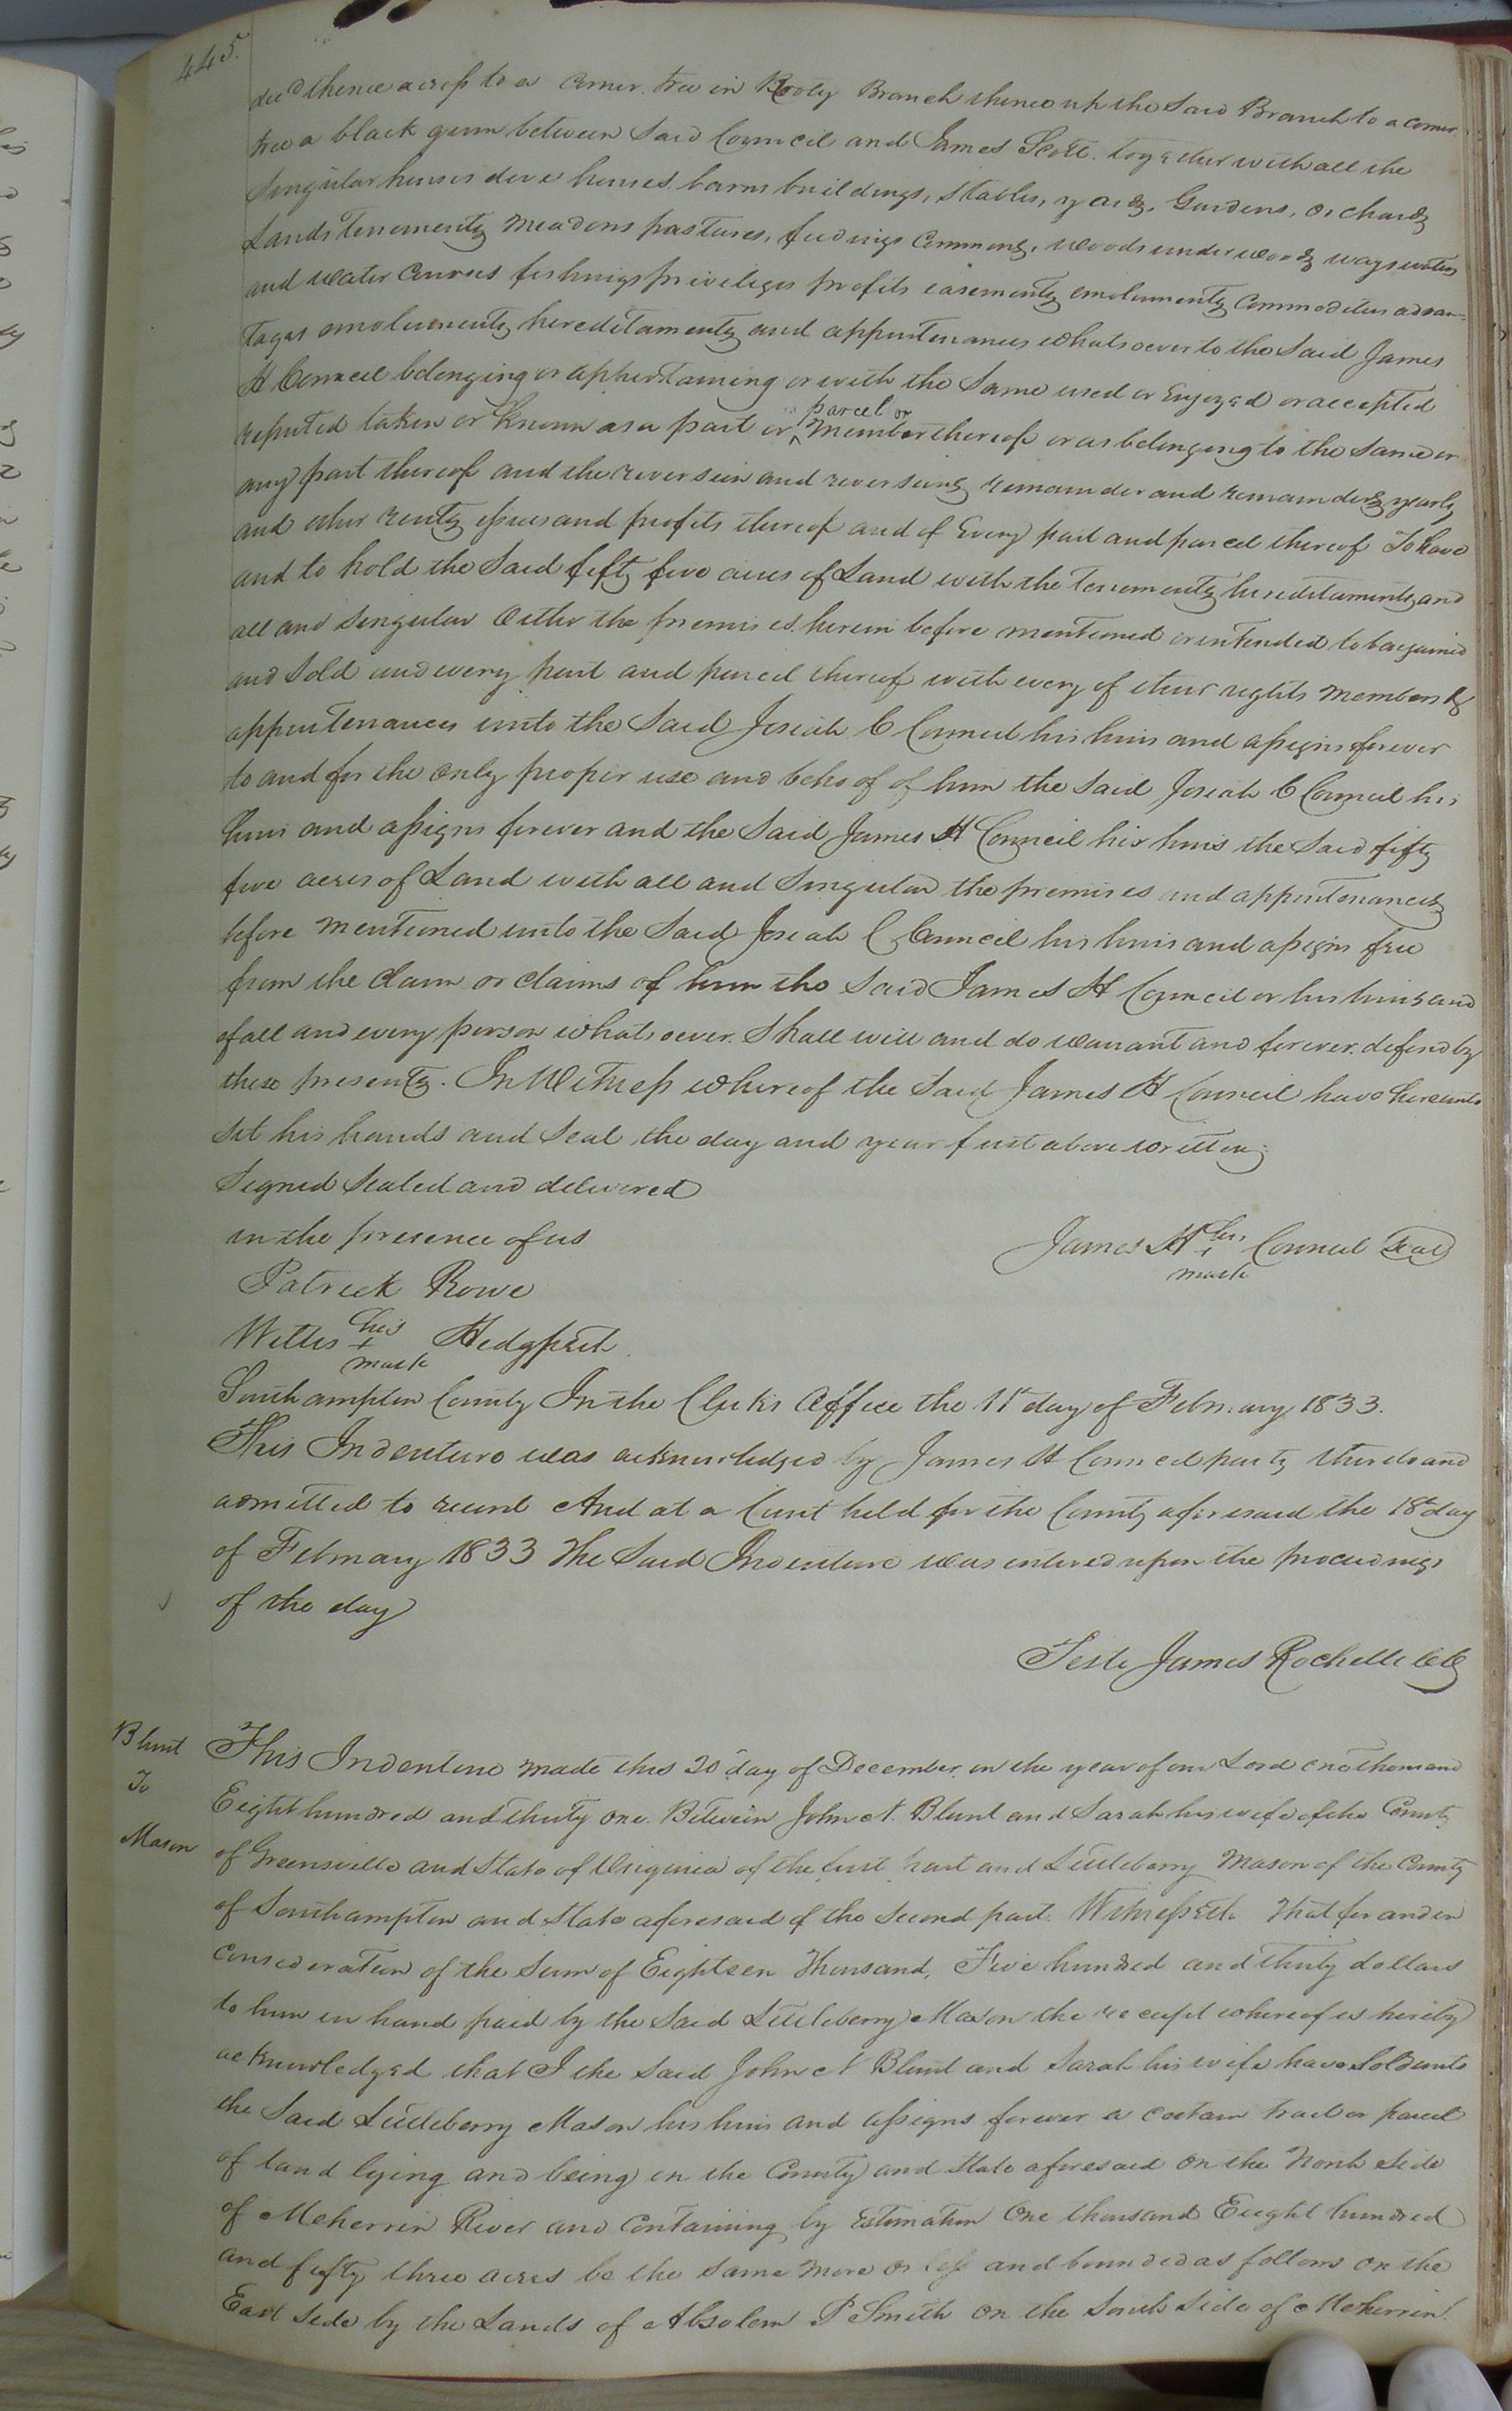 445.
decd thence across to a corner tree in Rooty Branch thence up the Said Branch to a corner
tree a black gum between Said Council and James Scott. together with all the
Singular houses dove houses barns buildings, Stables, yards, Gardens, orchards
Lands Tenements Meadows pastures, feedings Commons, woods underwoods ways waters
and water Courses fishings priviliges profits easements emoluments Commodities advan-
tages emoluments hereditaments and appurtenances whatsoever to the Said James
H Council belonging or appertaining or with the Same used or Enjoyed or accepted
reputed taken or Known as a part or ^ parcel or Member thereof or as belonging to the Same or
any part thereof and the reversion and reversions remainder and remainders yearly
and other rents issues and profits thereof and of Every part and parcel thereof To have
and to hold the Said fifty five acres of Land with the tenements hereditaments and
all and Singular Other the premises herein before mentioned or intended to bargained
and Sold and every part and parcel thereof with every of their rights Members &
appurtenances unto the Said Josiah C Council his heirs and assigns forever
to and for the Only proper use and behoof of him the Said Josiah C Council his
heirs and assigns forever and the Said James H Council his heirs the Said fifty
five acres of Land with all and Singular the premises and appurtenances
before mentioned unto the Said Josiah C Council his heirs and assigns free
from the Claim or Claims of him the Said James H Council or his heirs and
of all and every person whatsoever Shall will and do warrant and forever defend by
these presents. In Witness whereof the Said James H Council have hereunto
Set his hands and Seal the day and year first above written
Signed Sealed and delivered
in the presence of us
James H his + mark Council Seal
Patrick Rowe
Willis his + mark Hedgpeth
Southampton County In the Clerks Office the 11th day of February 1833.
This Indenture was acknowledged by James H Council party thereto and
admitted to record And at a Court held for the County aforesaid the 18th day
of February 1833 The Said Indenture was entered upon the proceedings
of the day
Teste James Rochelle CC
Blunt
To
Mason
This Indenture made this 20th day of December in the year of our Lord one thousand
Eight hundred and thirty one. Between John N. Blunt and Sarah his wife of the County
of Greensville and State of Virginia of the first part and Littleberry Mason of the County
of Southampton and State aforesaid of the Second part. Witnesseth That for and in
Consideration of the Sum of Eighteen Thousand, Five hundred and thirty dollars
to him in hand paid by the Said Littleberry Mason the receipt whereof is hereby
acknowledged that I the Said John N Blunt and Sarah his wife have Sold unto
the Said Littleberry Mason his heirs and assigns forever a certain tract or parcel
of land lying and being in the County and State aforesaid On the North Side
of Meherrin River and Containing by Estimation One thousand Eight hundred
and fifty three acres be the Same More or less and bounded as follows on the
East Side by the Lands of Absolem P Smith on the South Side of Meherrin